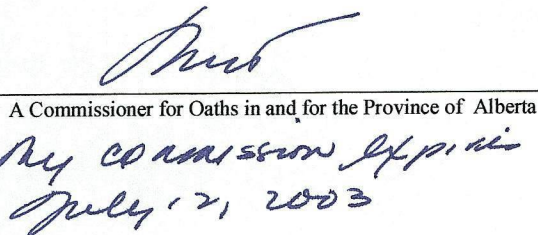 A Commissioner for Oaths in and for the Province of Alberta
My commission expires
July 12, 2003